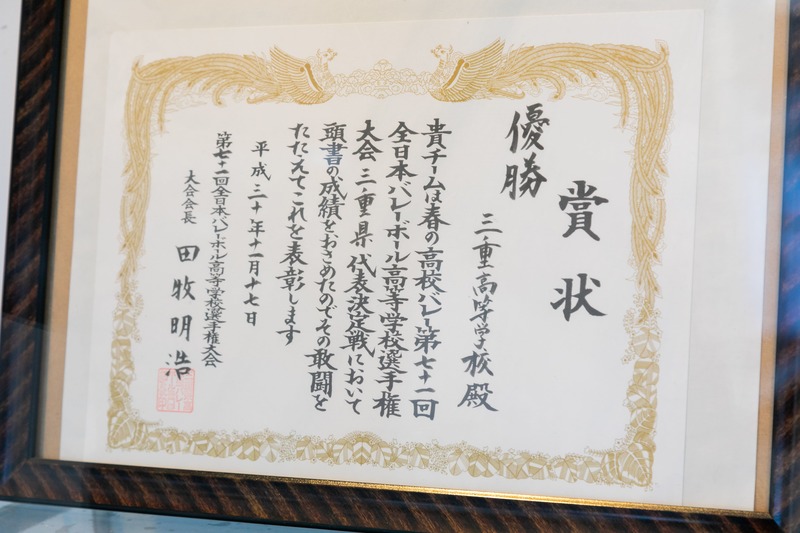 賞状
優勝
三重高等学校殿
貴チームは春の高校バレー第七十一回
全日本バレーボール高等学校選手権
大会三重県代表決定戦において
頭書の成績をおさめたのでその敢闘を
たたえてこれを表彰します
平成三十年十一月十七日
第七十一回全日本バレーボール高等学校選手権大会
大会会長 田牧明浩